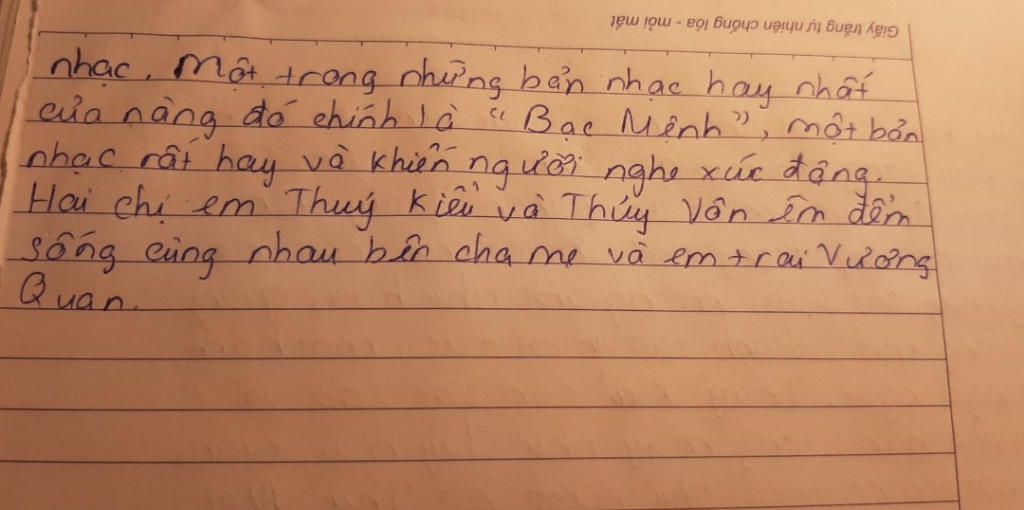 Giấy trắng tự nhiên chống lóa - mỏi mắt
nhạc. Một trong những bản nhạc hay nhất
của nàng đó chính là "Bạc Mệnh", một bản
nhạc rất hay và khiến người nghe xúc động.
Hai chị em Thuý Kiều và Thúy Vân êm đềm
sống cùng nhau bên cha mẹ và em trai Vương
Quan.